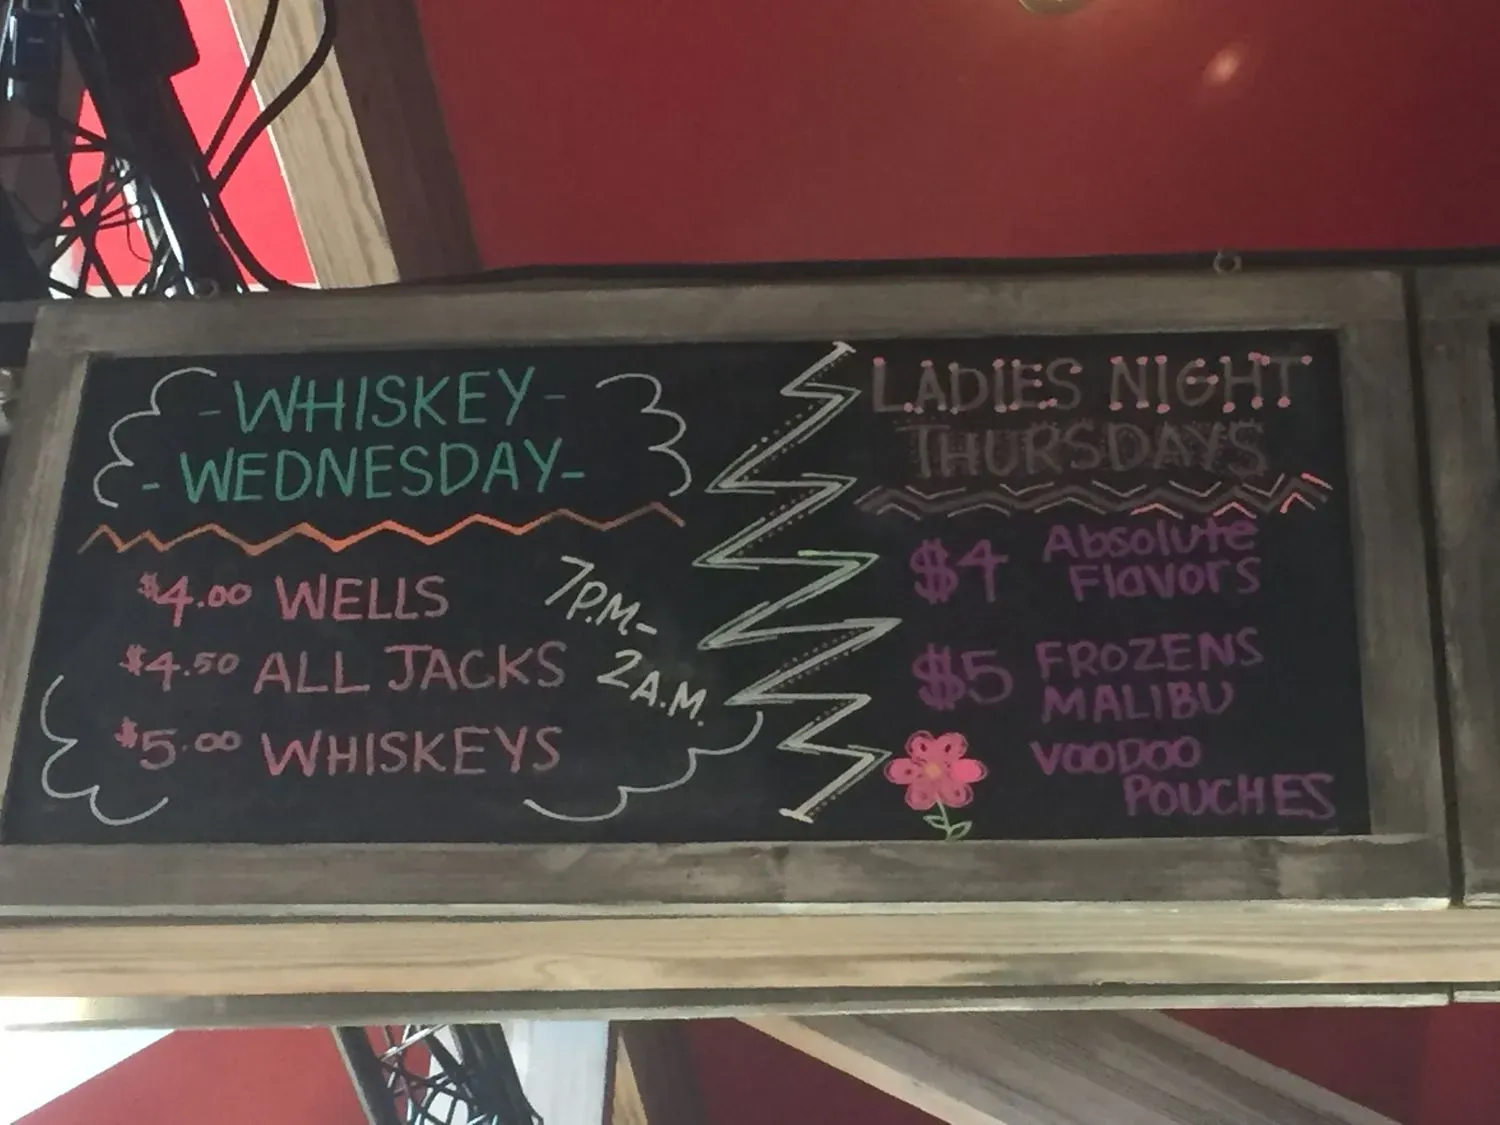 -WHISKEY-
-WEDNESDAY-
$4.00 WELLS
$4.50 ALL JACKS
$5.00 WHISKEYS
7P.M.-
2A.M.
LADIES NIGHT
THURSDAYS
$4 Absolute
Flavors
$5 FROZENS
MALIBU
VOODOO
POUCHES